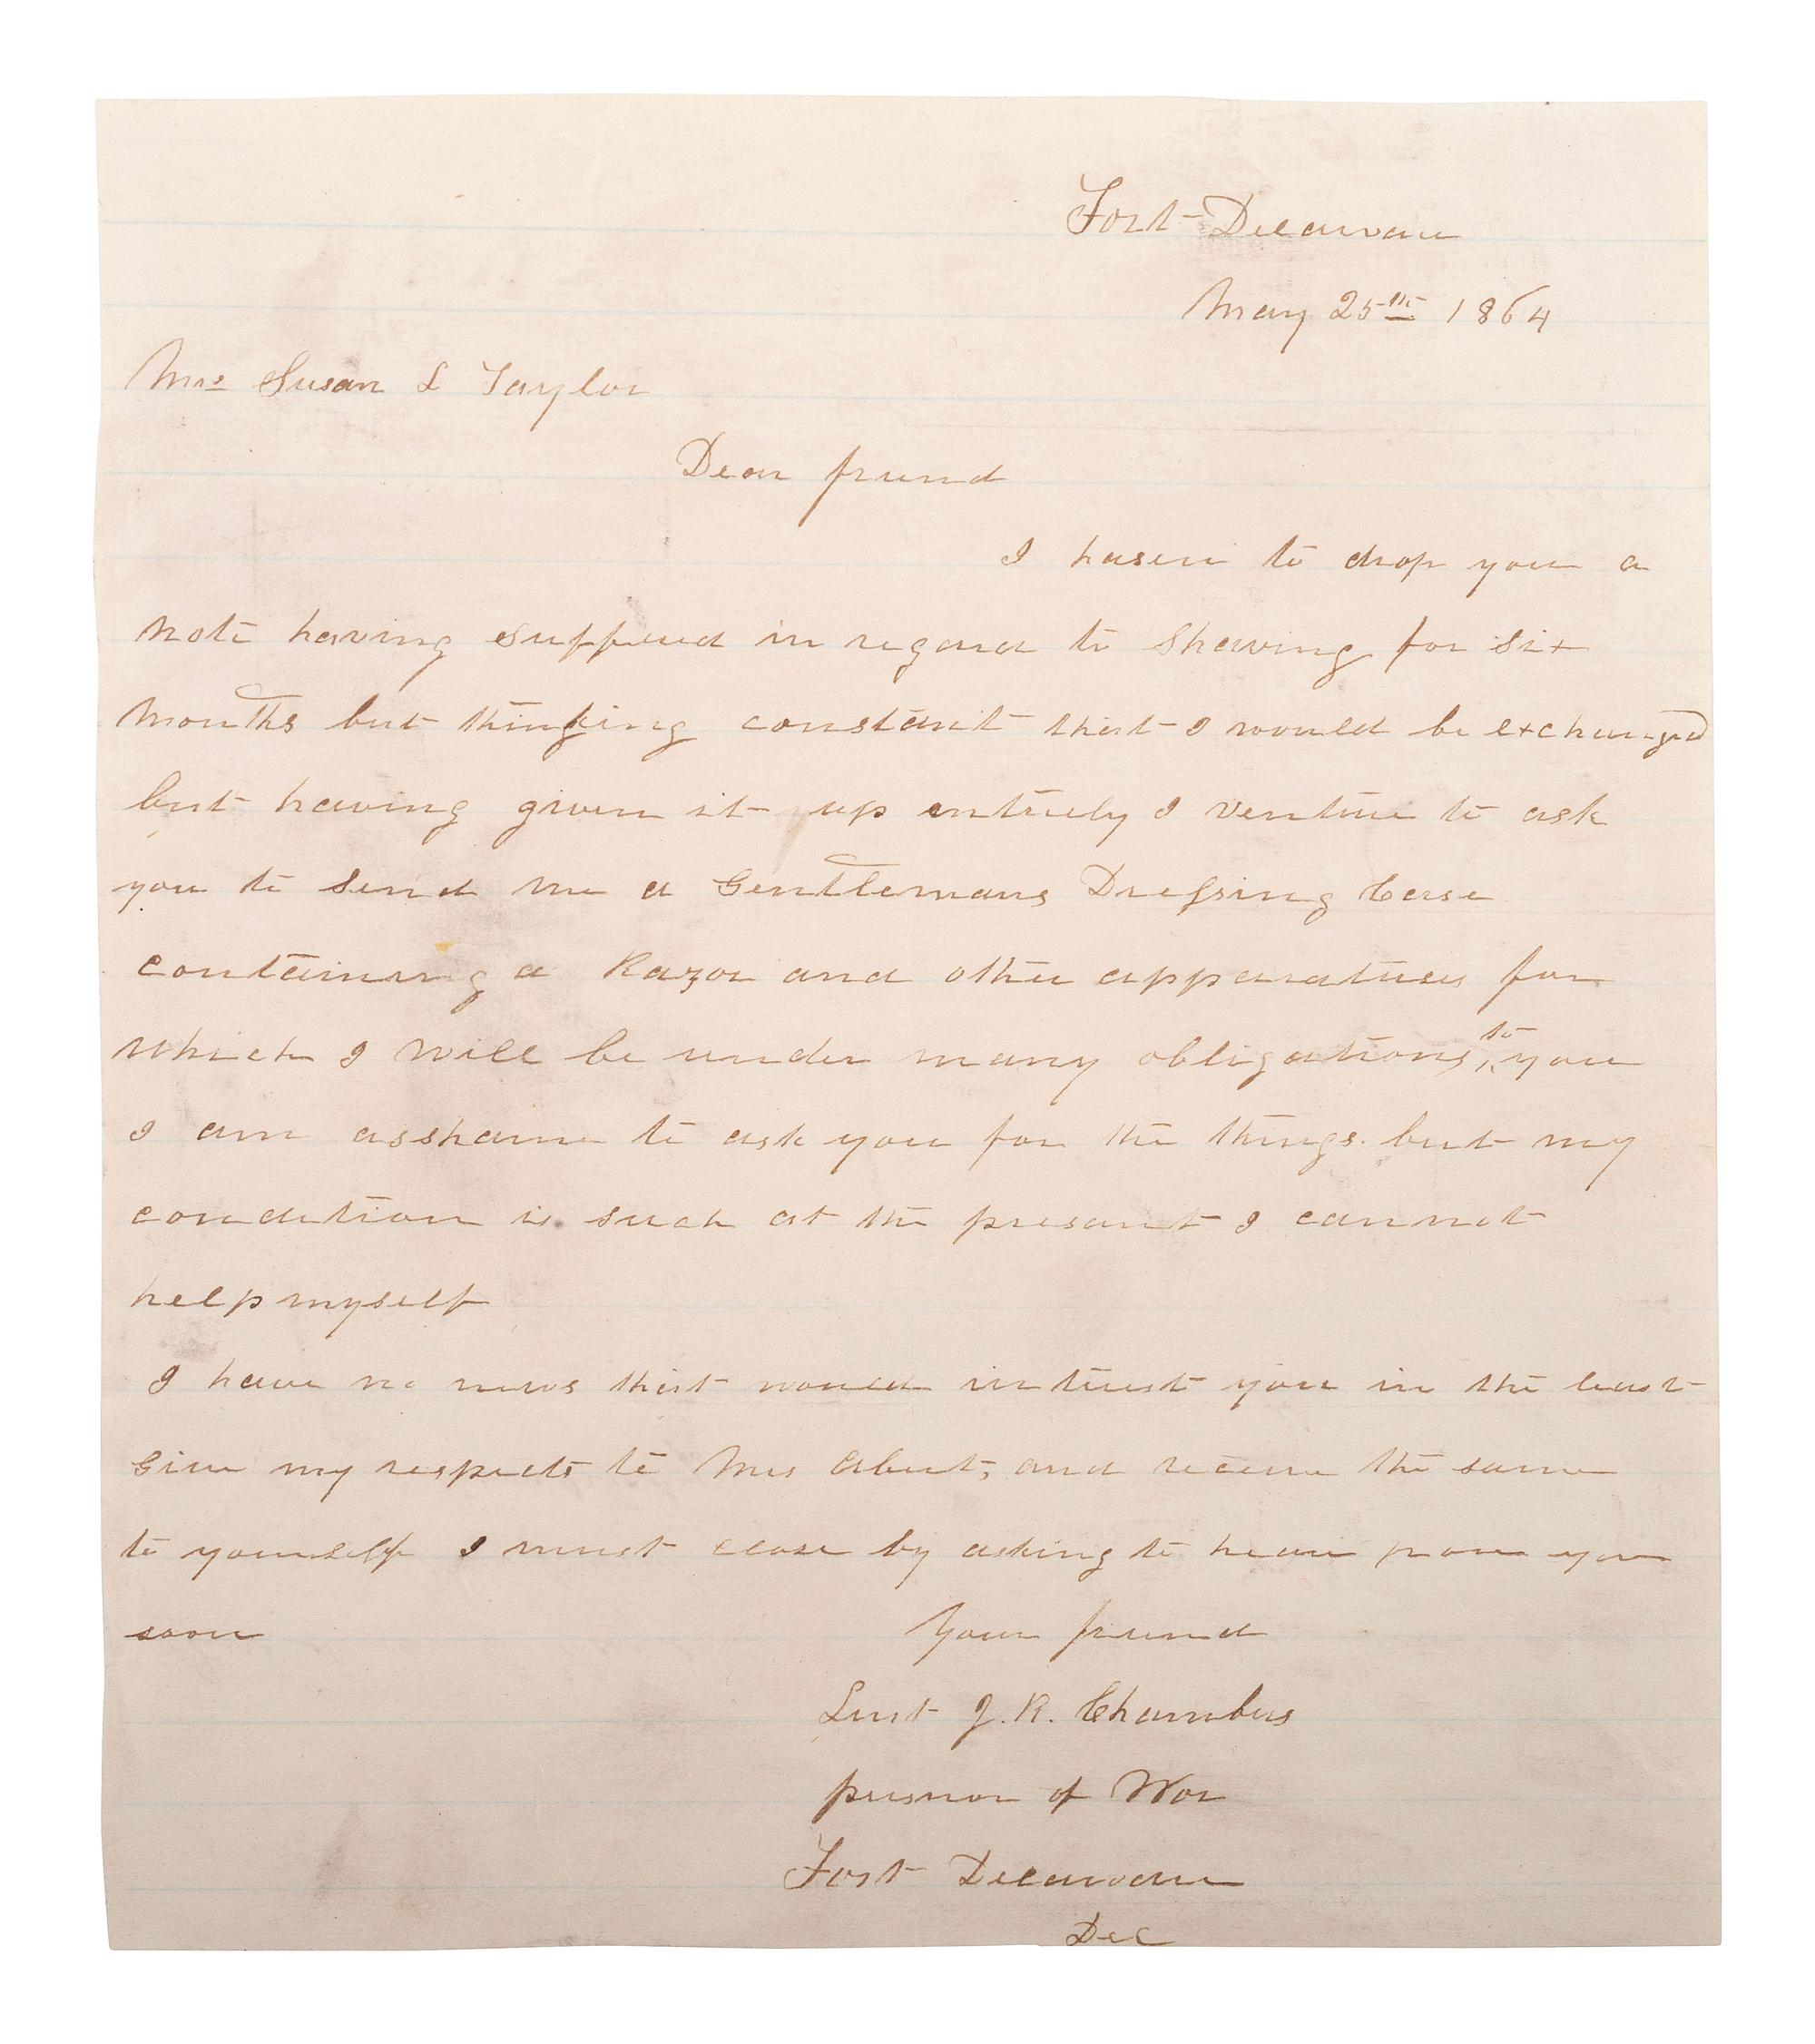 Fort Delaware
May 25th 1864
Mrs Susan L Taylor
Dear friend
I hasen to drop you a
note having suffered in regard to Shaving for six
Months but thinking constant that I would be exchanged
but having given it up entirely I venture to ask
you to Send me a Gentlemans Dressing Case
containing a Razor and other apparatuses for
which I will be under many obligations, to you
I am asshame to ask you for the things. but my
condition is such at the present I cannot
help myself
I have no news that would interest you in the least
Give my respects to Mrs and receive the same
to yourself I must close by asking to hear from you
soon Your friend
Leut J. R. Chambers
prisnor of War
Fort Delaware
Del